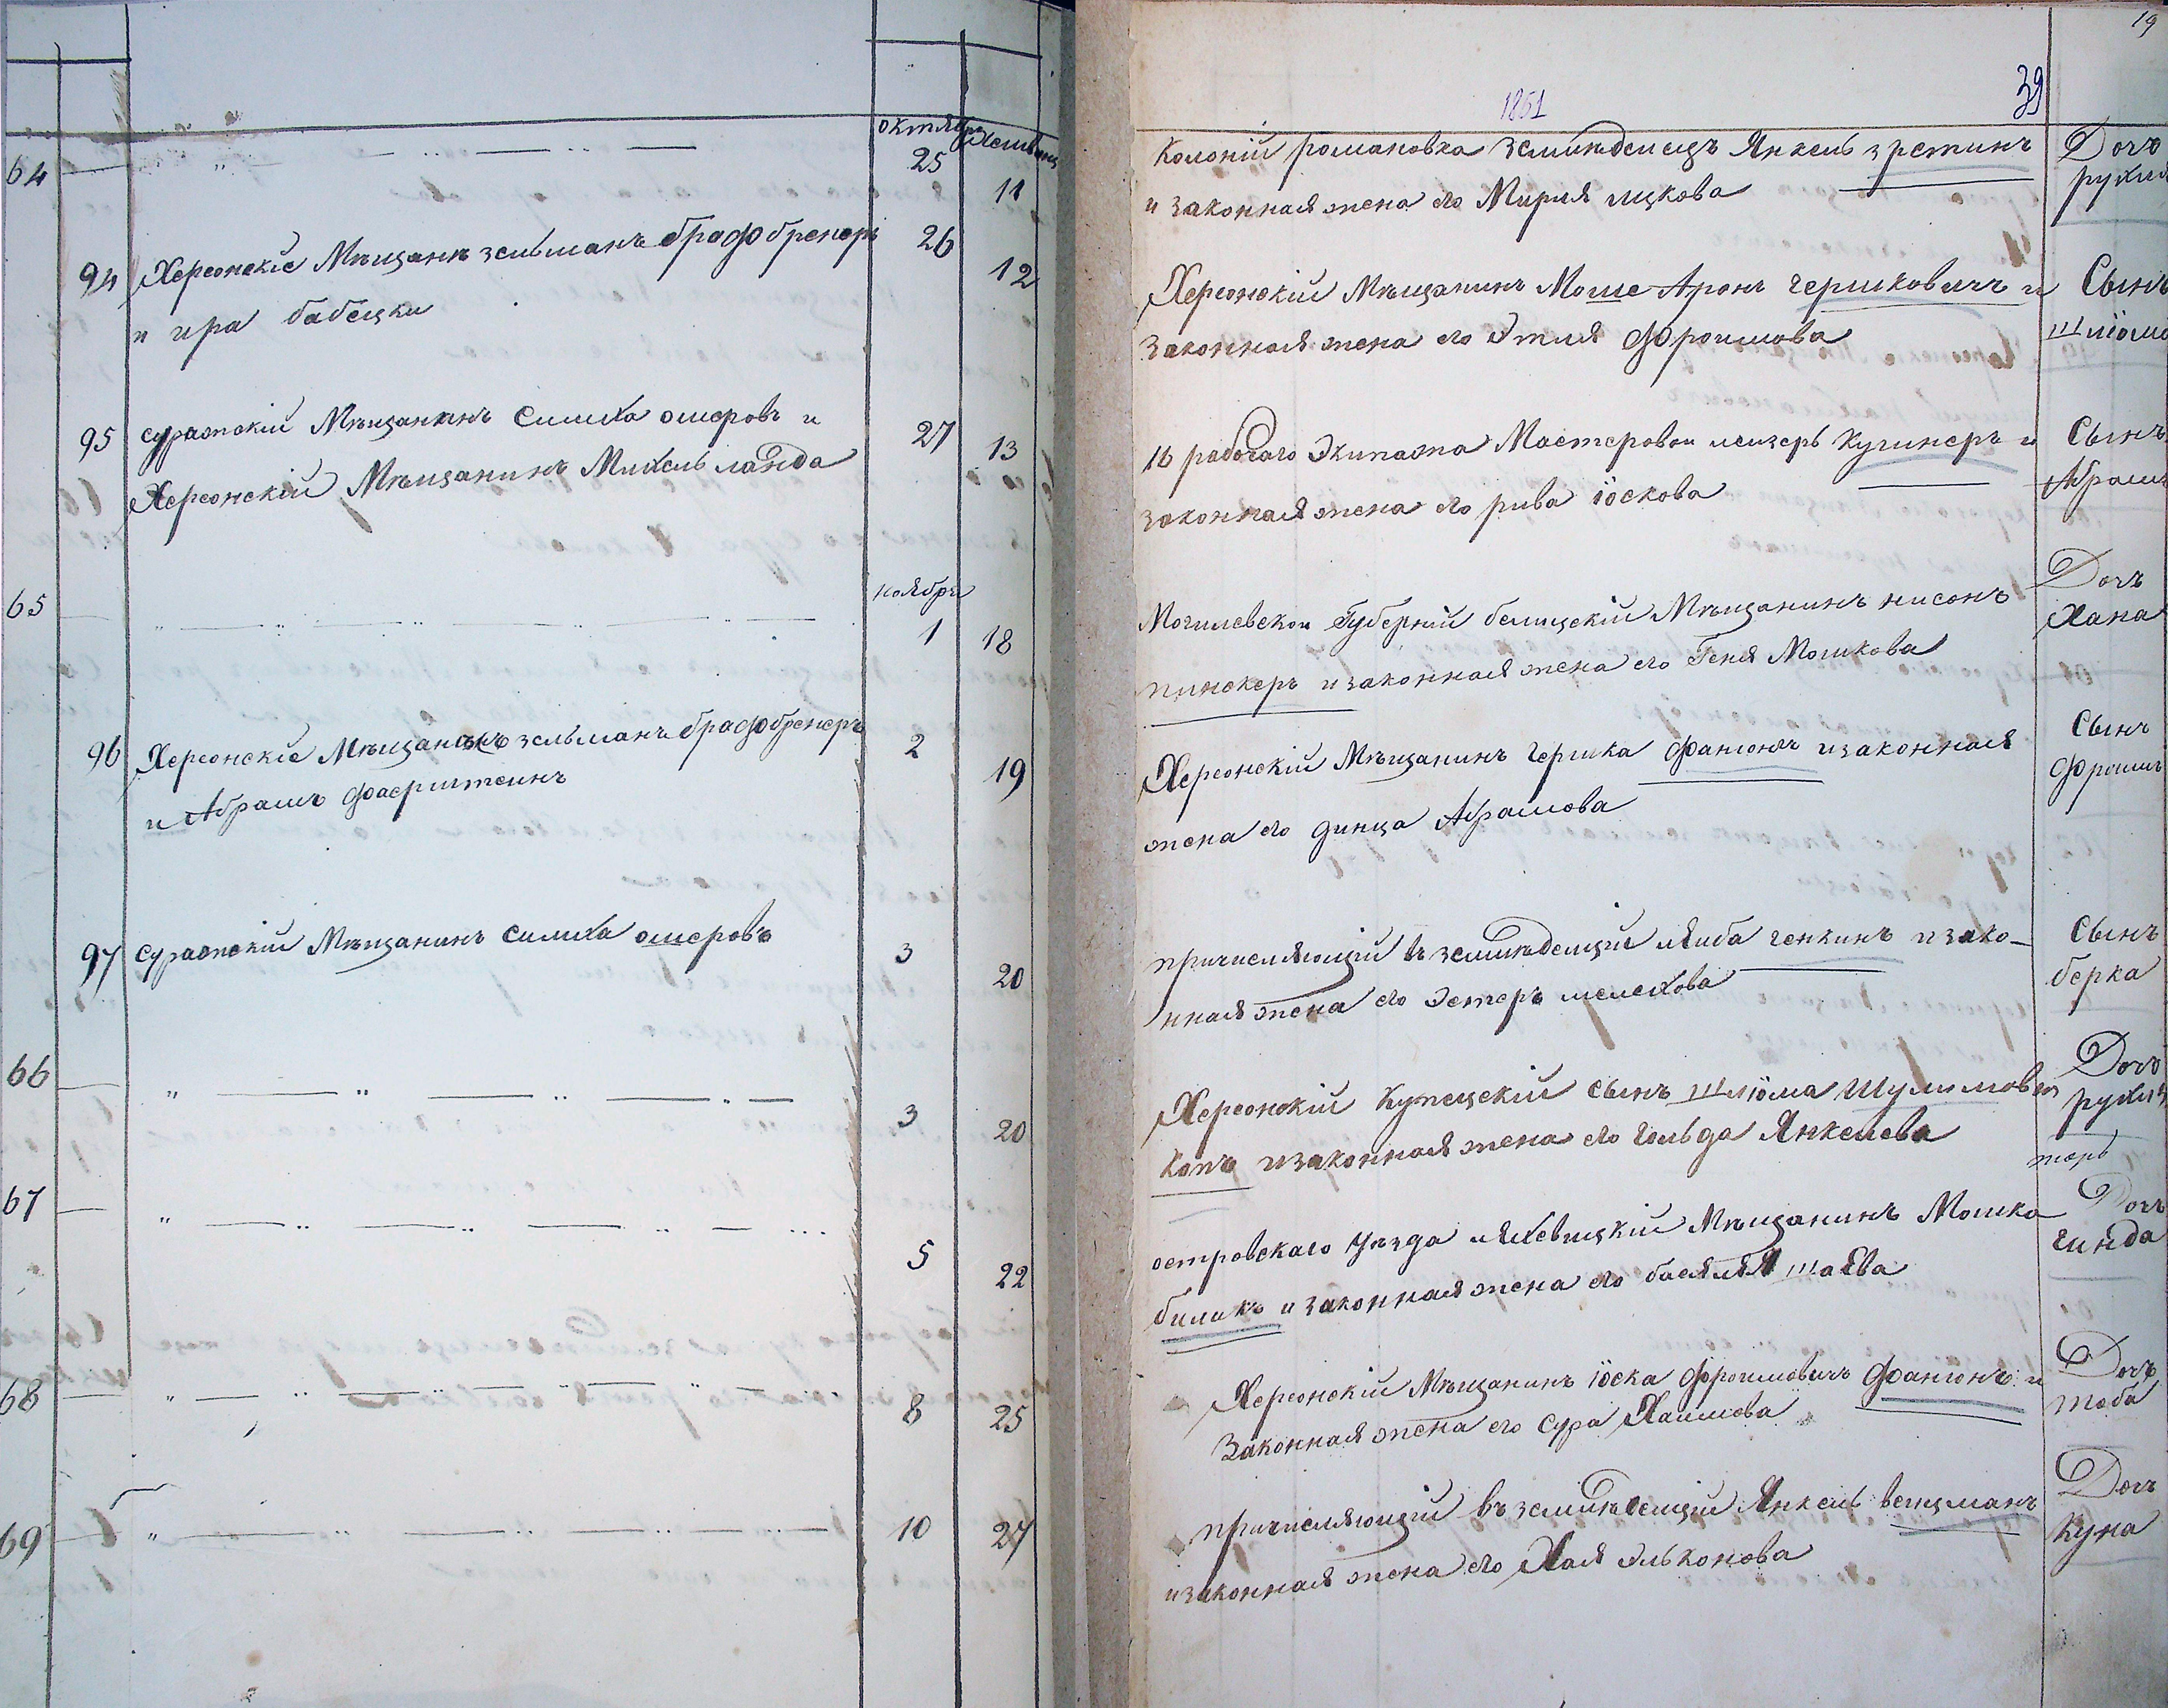 октября Хешванъ
64 25 11
94 Херсонскіе Мѣщанъ зельманъ брафобренеръ 26 12
и ира бабецки
95 суражскій Мѣщанинъ Симха ошеровъ и 27 13
Херсонскій Мѣщанинъ Михель ланда
ноября
65 1 18
96 Херсонскіе Мѣщанъ зельманъ брафобренеръ 2 19
и Абрамъ фаерштеинъ
97 суражскій Мѣщанинъ симха ошеровъ 3 20
66 3 20
67 5 22
68 8 25
69 10 27
19
39
1861
Колоніи романовка Землѣделецъ Янкель
и законная жена его Мирля ицкова
Дочь
рухля
Херсонскій Мѣщанинъ Моше Аронъ гершковичъ и
законная жена его Этля Фроимова
Сынъ
шліома
16 рабочаго Экипажа Мастеровои леизеръ Кушнеръ и
законная жена его рива іоскова
Сынъ
Абрамъ
Могилевскои Губерніи белицскіи Мѣщанинъ нисонъ
пинскеръ и законная жена его Геня Мошкова
Дочь
Хана
Херсонскій Мѣщанинъ гершка фанюнъ и законная
жена его динца Абрамова
Сынъ
Фроимъ
причисляющіи въ землѣделцы ляиба генкинъ и зако-
нная жена его Эстеръ мелехова
Сынъ
берка
Херсонскій Купецскіи сынъ шліома Шулимовъ
Капъ и законная жена его гольда Янкелева
Дочь
рухля
островскаго уѣзда ляховицкіи Мѣщанинъ Мошка
биликъ и законная жена его баселя шаева
Дочь
гинда
Херсонскій Мѣщанинъ іоска фроимовичъ фанюнъ и
законная жена его сура Хаимова
Дочь
тоба
причисляющіи въ землѣделцы Янкель веицманъ
и законная жена его Хая эльконова
Дочь
Куна